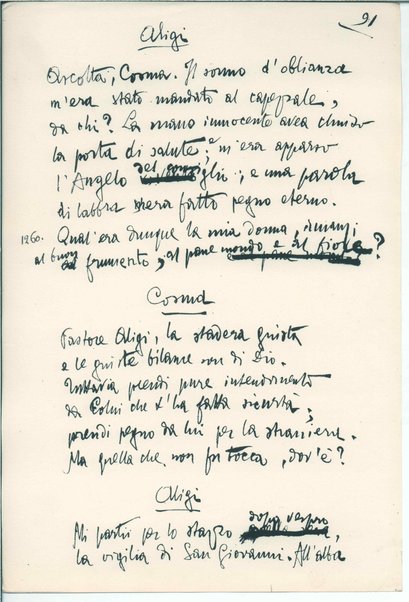 91
Aligi
Ascolta, Cosma. Il sonno d'oblianza
m'era stato mandato al capezzale,
da chi? La mano innocente avea chiuso
la porta di salute; e m'era apparso
l'Angelo del consiglio; e una parola
di labbra s'era fatto pegno eterno.
1260. Qual'era dunque la mia donna, innanzi
al buon frumento, al pane mondo e al fiore?
Cosma
Pastore Aligi, la stadera giusta
e le giuste bilance son di Dio.
Tuttavia prendi pure intendimento
da Colui che t'ha fatta sicurtà,
prendi pegno da lui per la straniera.
Ma quella che non fu tocca, dov'è?
Aligi
Mi partii per lo stazzo dopo vespro,
la vigilia di San Giovanni. All'alba